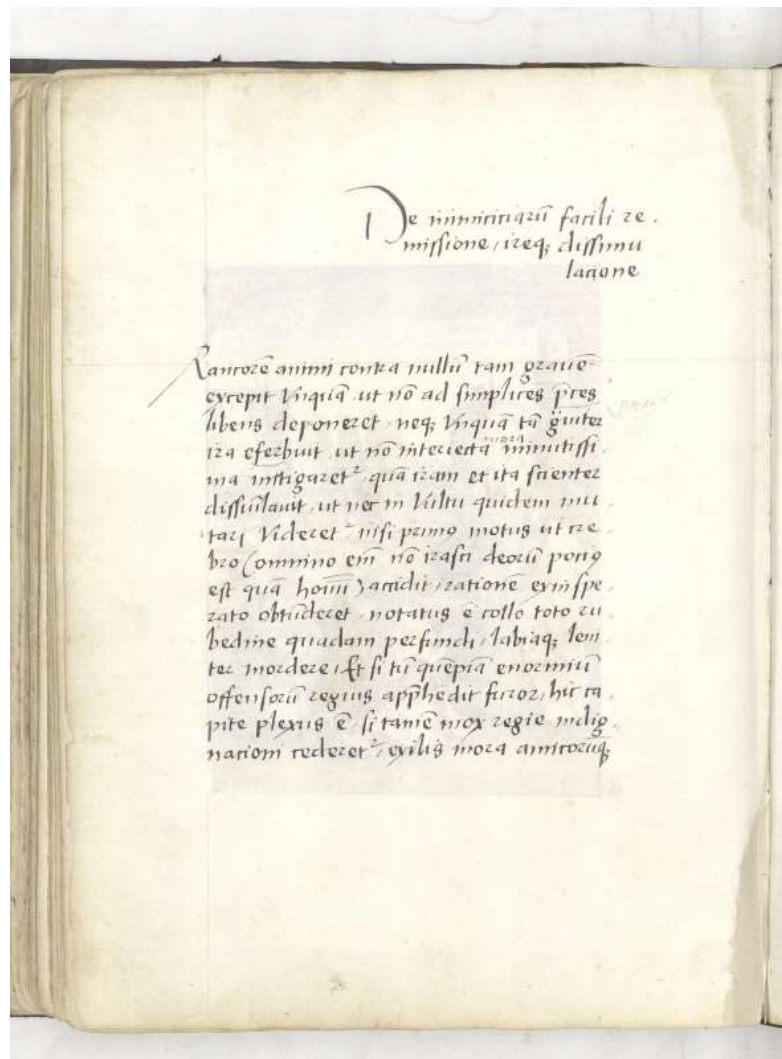 De inimiciciarū facili re
missione, ireq; dissimu
lacione
Rancorē animi contra nullū tam grauē
excepit Vnquā ut nō ad simplices p̄ces
libens deponeret neq; Vnquā tā g̃uiter
ira eferbuit ut nō interiecta mora minutissi
ma mitigaret᷑ quā iram et ita scienter
dissimlauit, ut nec in Vultu quidem mu
tari Videret᷑ nisi primꝰ motus ut cre
bro (omnino em̄ nō irasci deorū pociꝰ
est quā homī) accidit, rationē ex inspe
rato obtūderet, notatus ē collo toto ru
bedine quadam perfundi, labiaq; leni
ter mordere, Et si tū quēpiā enormiū
offensorū regius app̄hēdit furor, hic ca
pite plexus ē, si tamē mox regie indig
nacioni cederet᷑, exilis mora amicorūq;